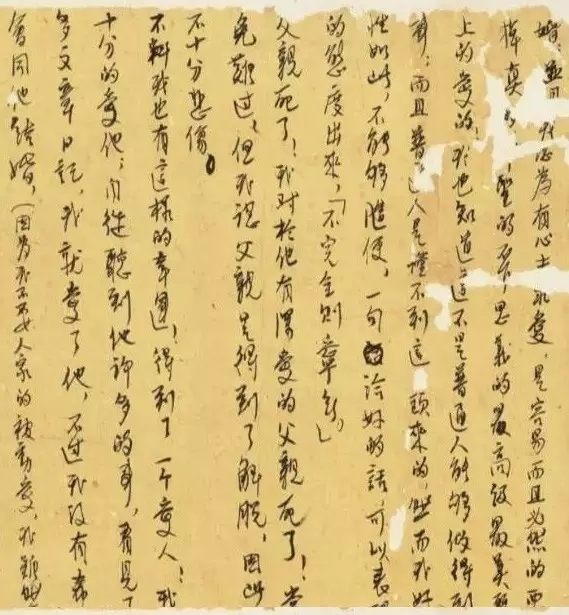 婚，並且我以為有心去求愛，是容易而且必然的要
掉真 ，聖的不可思議的最高級最美
上的愛的！我也知道這不是普通人能夠做得到
事，而且普 人是謹不到這頭來的，然而我好
性如此，不能夠隨便，一句恰好的話可以表
的態度出來，「不完全則寧無。」
父親死了！我对於他有深愛的父親死了！當
免難过，但我認父親是得到了解脫，因此
不十分悲傷。
不料我也有這樣的幸運！得到了一个愛人！我
十分的愛他；自從聽到他許多的事，看見了
多文章日記，我就愛了他，不过我沒有希
會同他結婚，（因為我不要人家的被動愛，我雖然